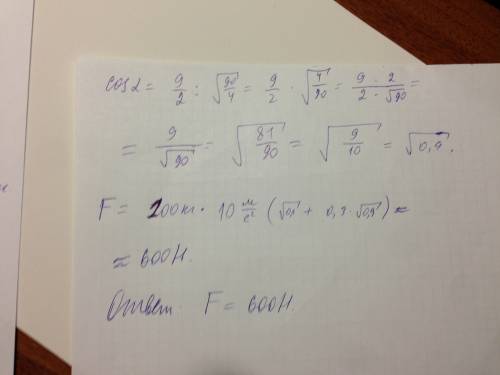 cos α = 9/2 : √(90/4) = 9/2 · √(4/90) = (9 · 2)/(2 · √90) =
= 9/√90 = √(81/90) = √(9/10) = √0,9.
F = 200кг · 10 м/с² (√0,1 + 0,3 · √0,9) ≈
≈ 600Н.
Ответ: F = 600Н.